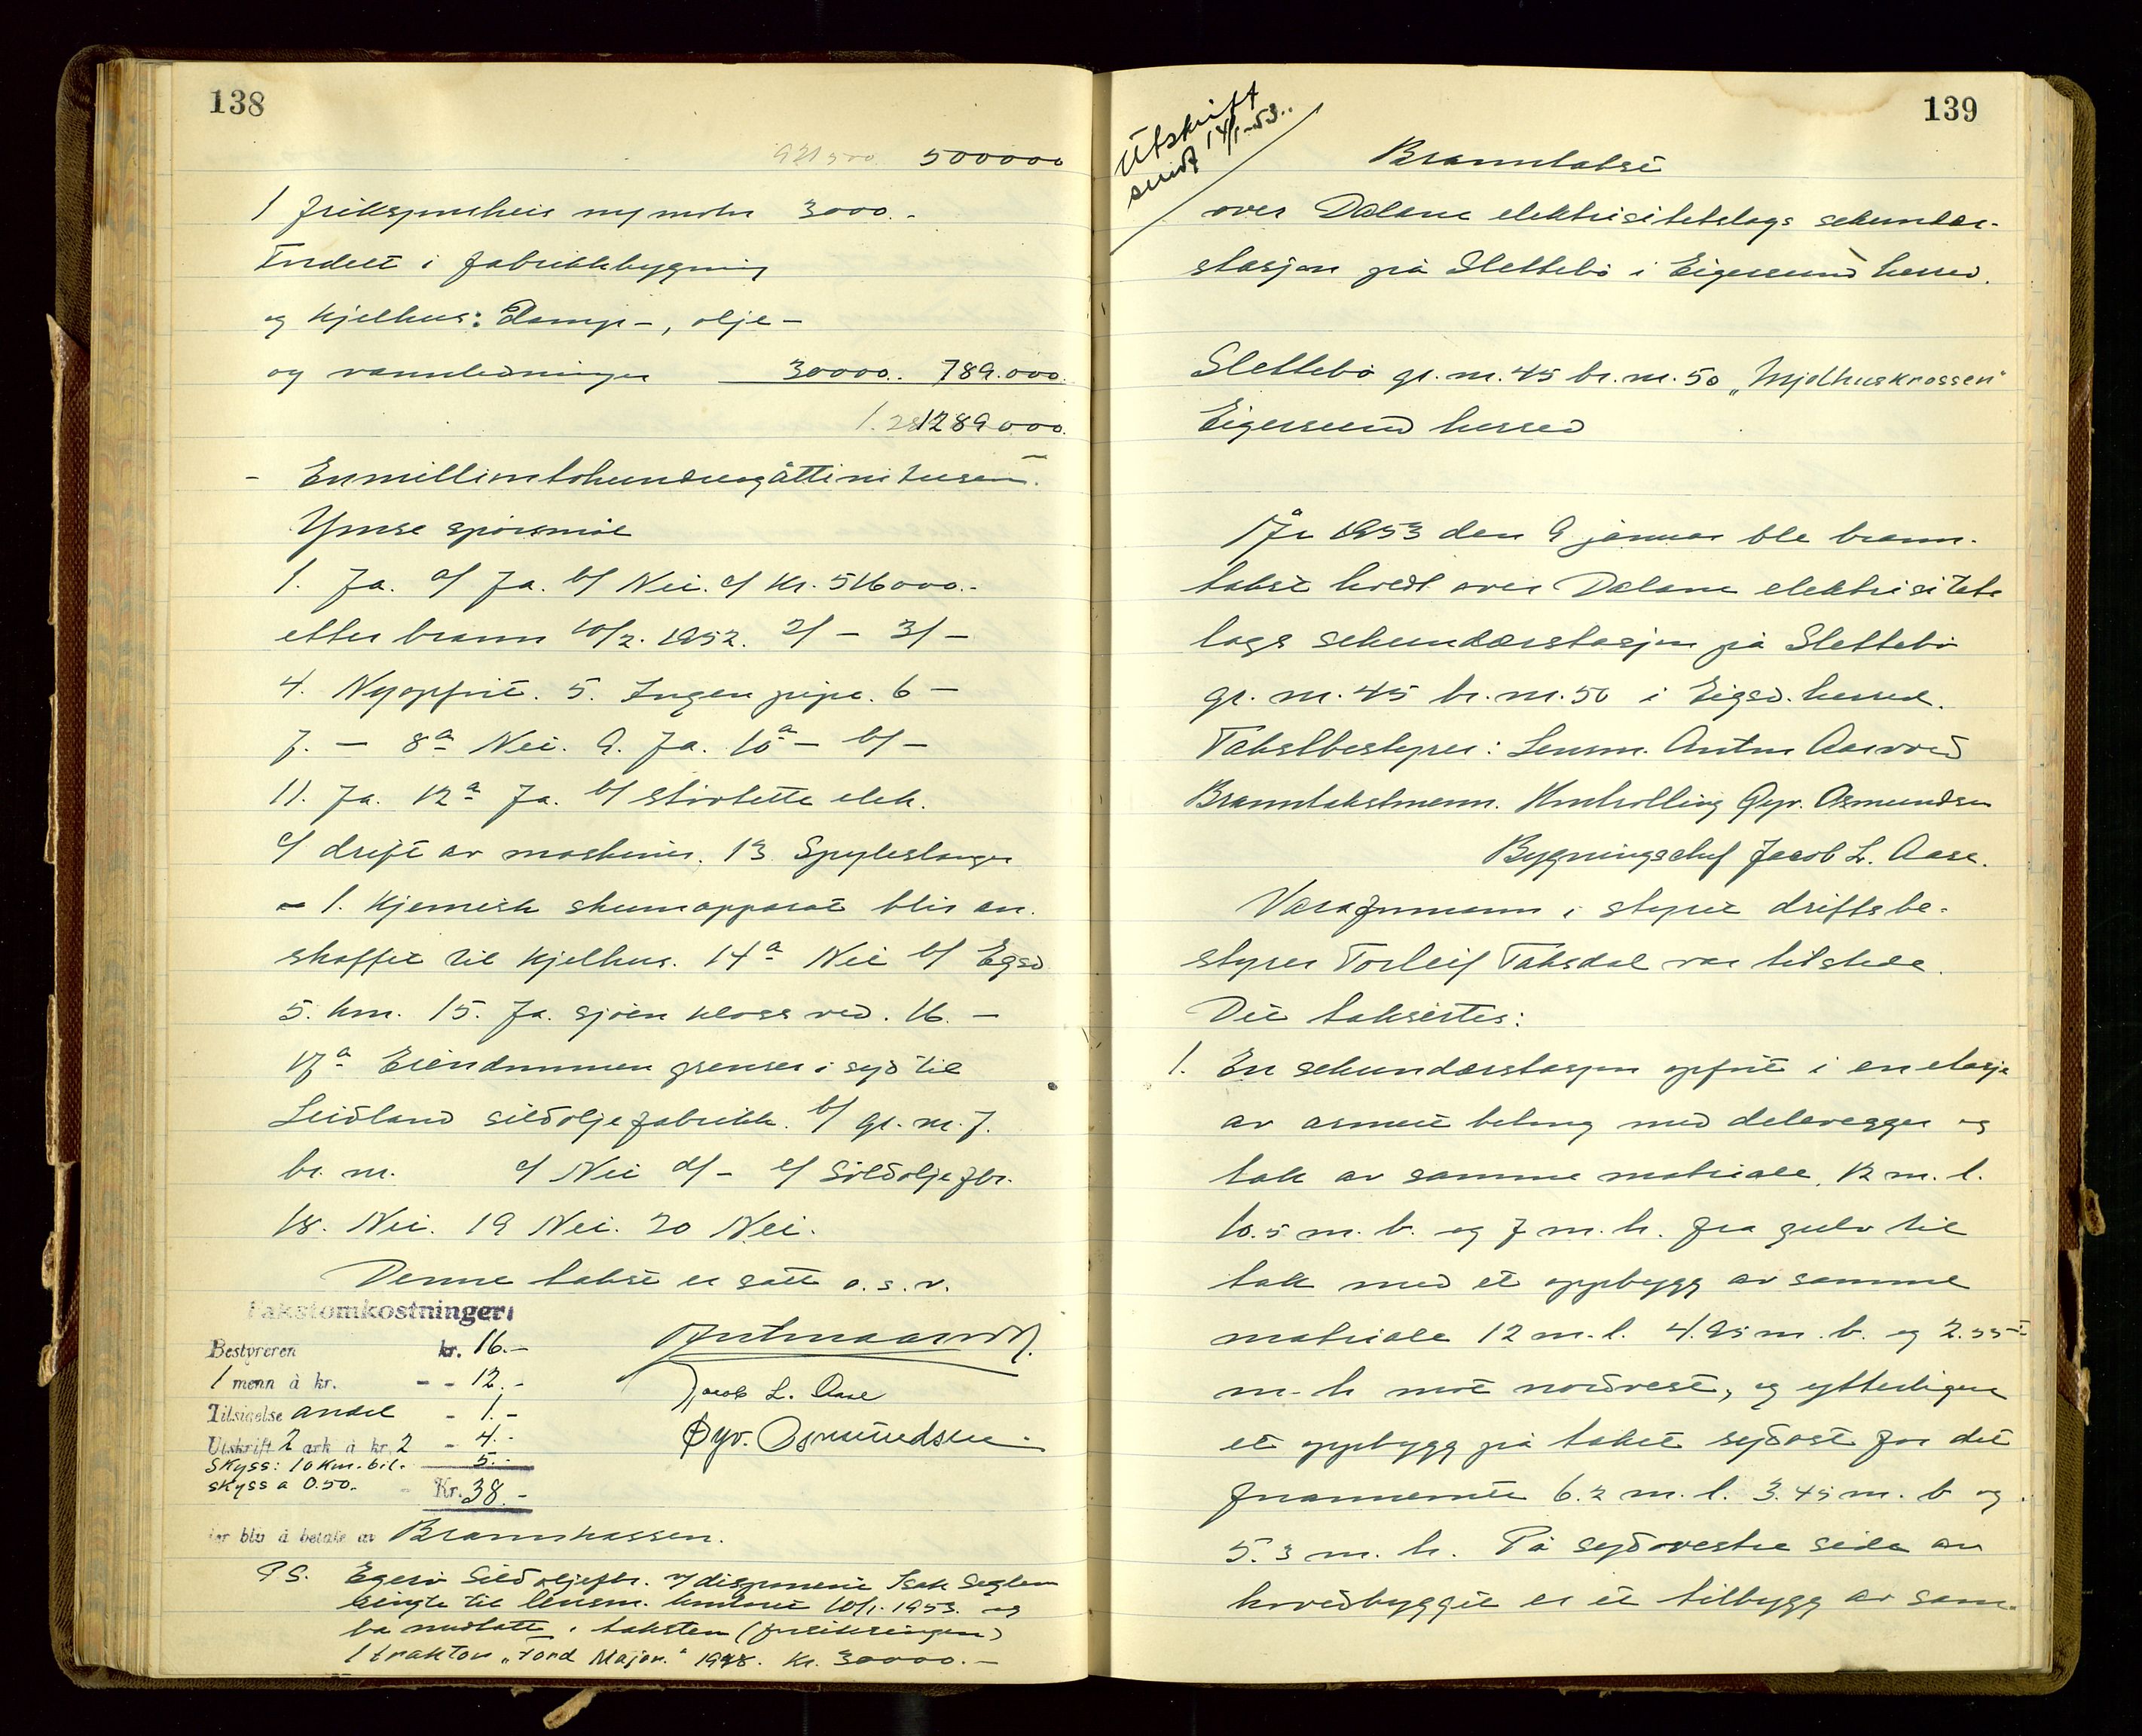 138
921500 500000
1 friksjonsheis m/motor 3000.-
Fordelt i fabrikkbygning
og kjelhus: Damp-, olje-
og vannledninger 30000.. 789.000.
1289000.
- Enmilliontohundreogåttinitusen.-
Ymse spörsmål
1. Ja. a/ Ja. b/ Nei. c/ Kr. 516000.-
etter brann 10/2. 1952. 2/ - 3/ -
4. Nyoppfört. 5. Ingen pipe. 6 -
7. - 8a Nei. 9. Ja. 10a - b/ -
11. Ja. 12a Ja. b/ stövtette elek.
c/ drift av maskiner. 13 Spyleslanger
- 1. Kjemisk skumapparat blir an-
skaffet til kjelhus. 14a Nei b/ Egsd
5. km. 15. Ja. sjöen kloss ved. 16. -
17a Eiendommen grenser i syd til
Leidland sildoljefabrikk. b/ gr. nr. 7.
br. nr. c/ Nei d/ - e/ Sildoljefbr.
18. Nei. 19 Nei. 20 Nei.
Denne takst er satt o. s. v.
Takstomkostninger:
Bestyreren kr. 16.-
1 menn à kr. - - 12.-
Tilsigelse andel - 1.-
Utskrift 2 ark à kr. 2 - 4.-
Skyss: 10 km. bil. 5.-
skyss a 0.50. - Kr. 38.-
Jacob L. Aase
Øyv. Osmundsen
som blir å betale av Brannkassen.
P S. Egerö Sildoljefbr. v/ disponent Isak Seglem
ringte til lensm. kontoret 10/1. 1953. og
ba medtatt i taksten (forsikringen)
1 traktor "Ford Major." 1948. Kr. 30000.-
139
Utskrift
sendt 14/1-53..
Branntakst
over Dalane elektrisitetslags sekundær-
stasjon på Slettebö i Eigersund herred.
Slettebö gr. nr. 45 br. nr. 50 "Mjølhuskrossen"
Eigersund herred
År 1953 den 9 januar ble brann-
takst holdt over Dalane elektrisitets
lags sekundærstasjon på Slettebö
gr. nr. 45 br. nr. 50 i Eigsd. herred.
Takstbestyrer: Lensm. Anton Aarrvad
Branntakstmenn. Kontrolling Øyv. Osmundsen
Bygningschef Jacob L. Aase.
Varaformann i styret driftsbe-
styrer Torleif Taksdal var tilstede.
Det takseres:
1. En sekundærstasjon oppfört i en etasje
av armert betong med delevegger og
tak av samme matriale, 12 m. l.
10.5 m. b. og 7 m. h. fra gulv til
tak med et oppbygg av samme
matriale 12 m. l. 4.95 m. b. og 2.55
m. h mot nordvest, og ytterligere
et oppbygg på taket sydöst for det
fornevnte 6.2 m. l. 3.45 m. b og
5.3 m. h. På sydvestre side av
hovedbygget er et tilbygg av sam-